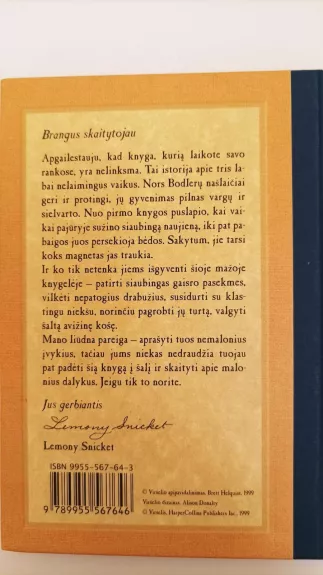 Brangus skaitytojau
Apgailestauju, kad knyga, kurią laikote savo
rankose, yra nelinksma. Tai istorija apie tris la-
bai nelaimingus vaikus. Nors Bodlerų našlaičiai
geri ir protingi, jų gyvenimas pilnas vargų ir
sielvarto. Nuo pirmo knygos puslapio, kai vai-
kai pajūryje sužino siaubingą naujieną, iki pat pa-
baigos juos persekioja bėdos. Sakytum, jie tarsi
koks magnetas jas traukia.
Ir ko tik netenka jiems išgyventi šioje mažoje
knygelėje – patirti siaubingas gaisro pasekmes,
vilkėti nepatogius drabužius, susidurti su klas-
tingu niekšu, norinčiu pagrobti jų turtą, valgyti
šaltą avižinę košę.
Mano liūdna pareiga – aprašyti tuos nemalonius
įvykius, tačiau jums niekas nedraudžia tuojau
pat padėti šią knygą į šalį ir skaityti apie malo-
nius dalykus. Jeigu tik to norite.
Jus gerbiantis
Lemony Snicket
Lemony Snicket
ISBN 9955-567-64-3
9 789955 567646
© Viršelio apipavidalinimas. Brett Helquist, 1999
Viršelio dizainas. Alison Donalty
© Viršelis. HarperCollins Publishers Inc., 1999